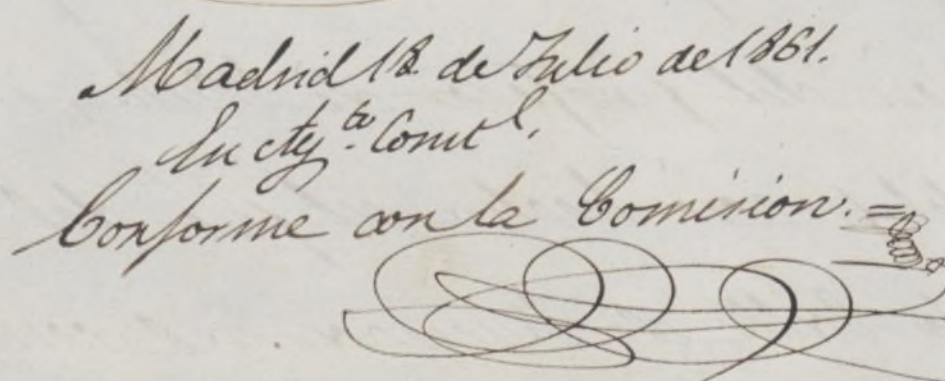 Madrid 18 de Julio de 1861.
En Ay.to Const.l
Conforme con la Comision.=